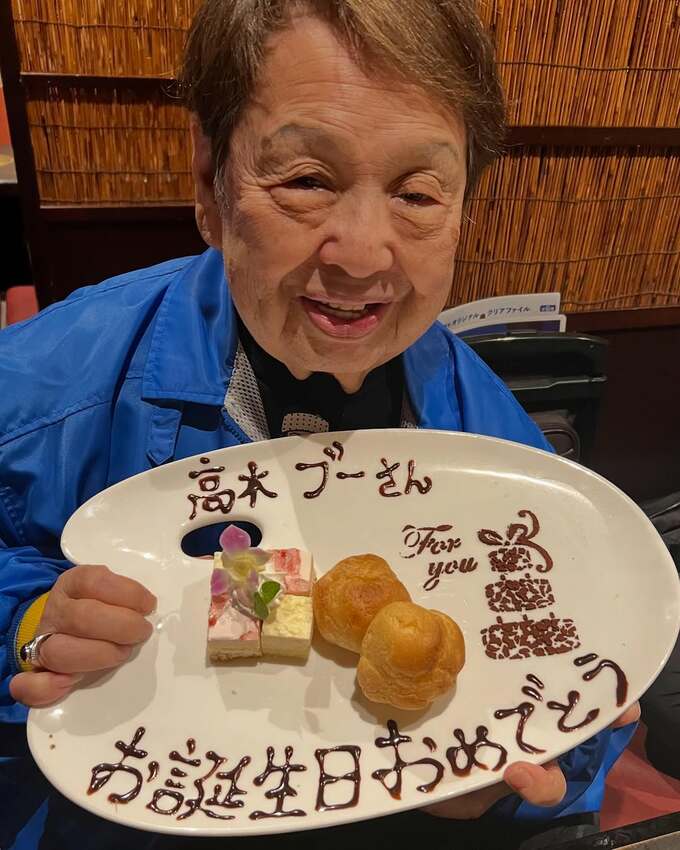 高木ブーさん
For
you
オリジナル クリアファイル
お誕生日おめでとう